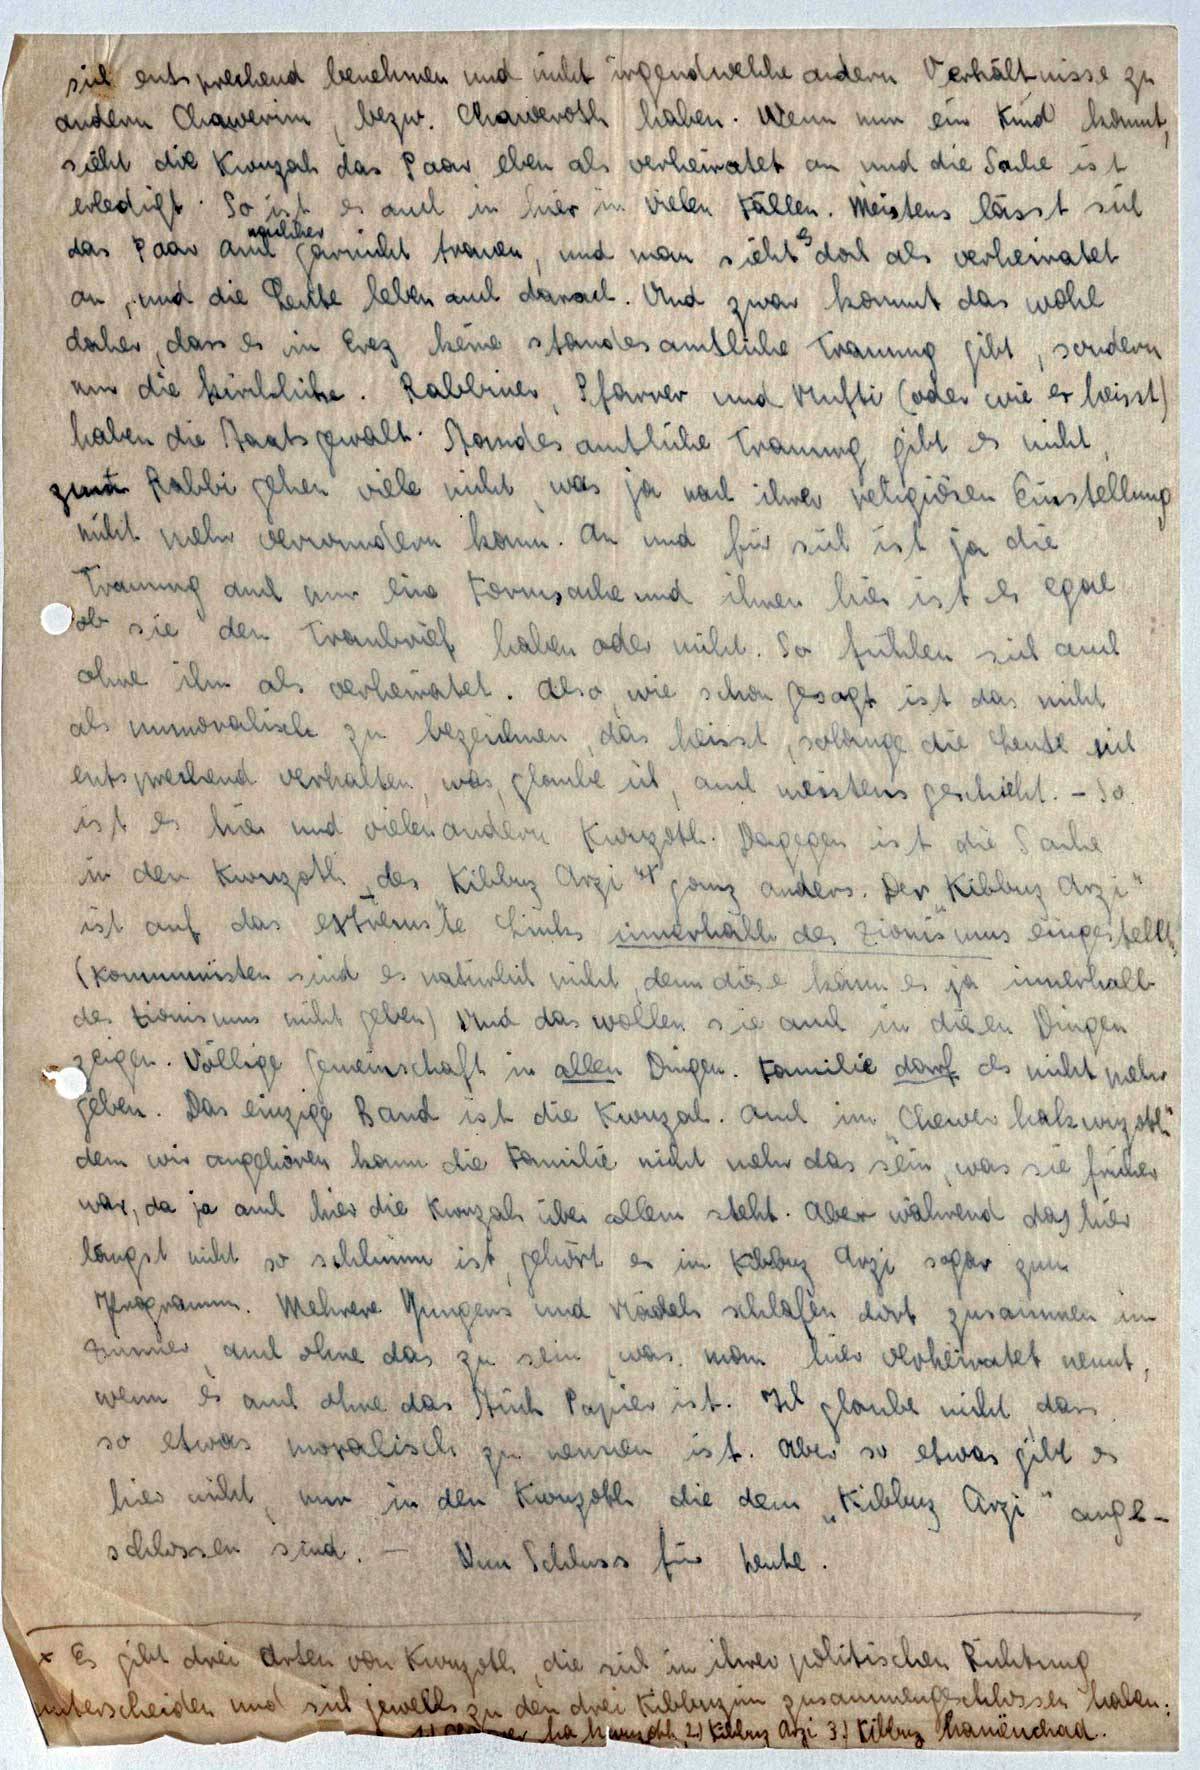 sich entsprechend benehmen und nicht irgendwelche andern Verhältnisse zu
andern Chawerim, bezw. Chaweroth haben. Wenn nun ein Kind kommt,
sieht die Kwuzah das Paar eben als verheiratet an und die Sache ist
erledigt. So ist es auch in hier in vielen Fällen. Meistens lässt sich
das Paar auch nachher garnicht trauen, und man sieht es doch als verheiratet
an, und die Leute leben auch darnach. Und zwar kommt das wohl
daher, dass es in Erez keine standesamtliche Trauung gibt, sondern
nur die kirchliche. Rabbiner, Pfarrer und Mufti (oder wie er heisst)
haben die Staatsgewalt. Standesamtliche Trauung gibt es nicht,
zum Rabbi gehen viele nicht, was ja nach ihrer religiösen Einstellung
nicht mehr verwundern kann. An und für sich ist ja die
Trauung auch nur eine Formsache und ihnen hier ist es egal
ob sie den Traubrief haben oder nicht. So fühlen sich auch
ohne ihn als verheiratet. Also, wie schon gesagt ist das nicht
als unmoralisch zu bezeichnen, das heisst, solange die Leute sich
entsprechend verhalten, was, glaube ich, auch meistens geschieht. – So
ist es hier und vielen andern Kwuzoth. Dagegen ist die Sache
in den Kwuzoth des „Kibbuz Arzi" x ganz anders. Der „Kibbuz Arzi"
ist auf das extremste Links innerhalb des Zionismus eingestellt
(Kommunisten sind es natürlich nicht, denn diese kann es ja innerhalb
des Zionismus nicht geben) Und das wollen sie auch in diesen Dingen
zeigen. Völlige Gemeinschaft in allen Dingen. Familie darf es nicht mehr
geben. Das einzige Band ist die Kwuzah. Auch im „Chewer hakwuzoth"
dem wir angehören kann die Familie nicht mehr das sein, was sie früher
war, da ja auch hier die Kwuzah über allem steht. Aber während das hier
längst nicht so schlimm ist, gehört es im Kibbuz Arzi sogar zum
Programm. Mehrere Jungens und Mädels schlafen dort zusammen im
Zimmer, auch ohne das zu sein, was man hier verheiratet nennt,
wenn es auch ohne das Stück Papier ist. Ich glaube nicht, dass
so etwas moralisch zu nennen ist. Aber so etwas gibt es
hier nicht, nur in den Kwuzoth die dem „Kibbuz Arzi" ange-
schlossen sind. – Nun Schluss für heute.
x Es gibt drei Arten von Kwuzoth, die sich in ihrer politischen Richtung
unterscheiden und sich jeweils zu den drei Kibbuzim zusammengeschlossen haben:
1) Chewer ha kwuzoth 2.) Kibbuz Arzi 3.) Kibbuz hameuchad.